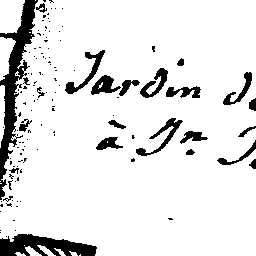 Jardin de
à Jn. P